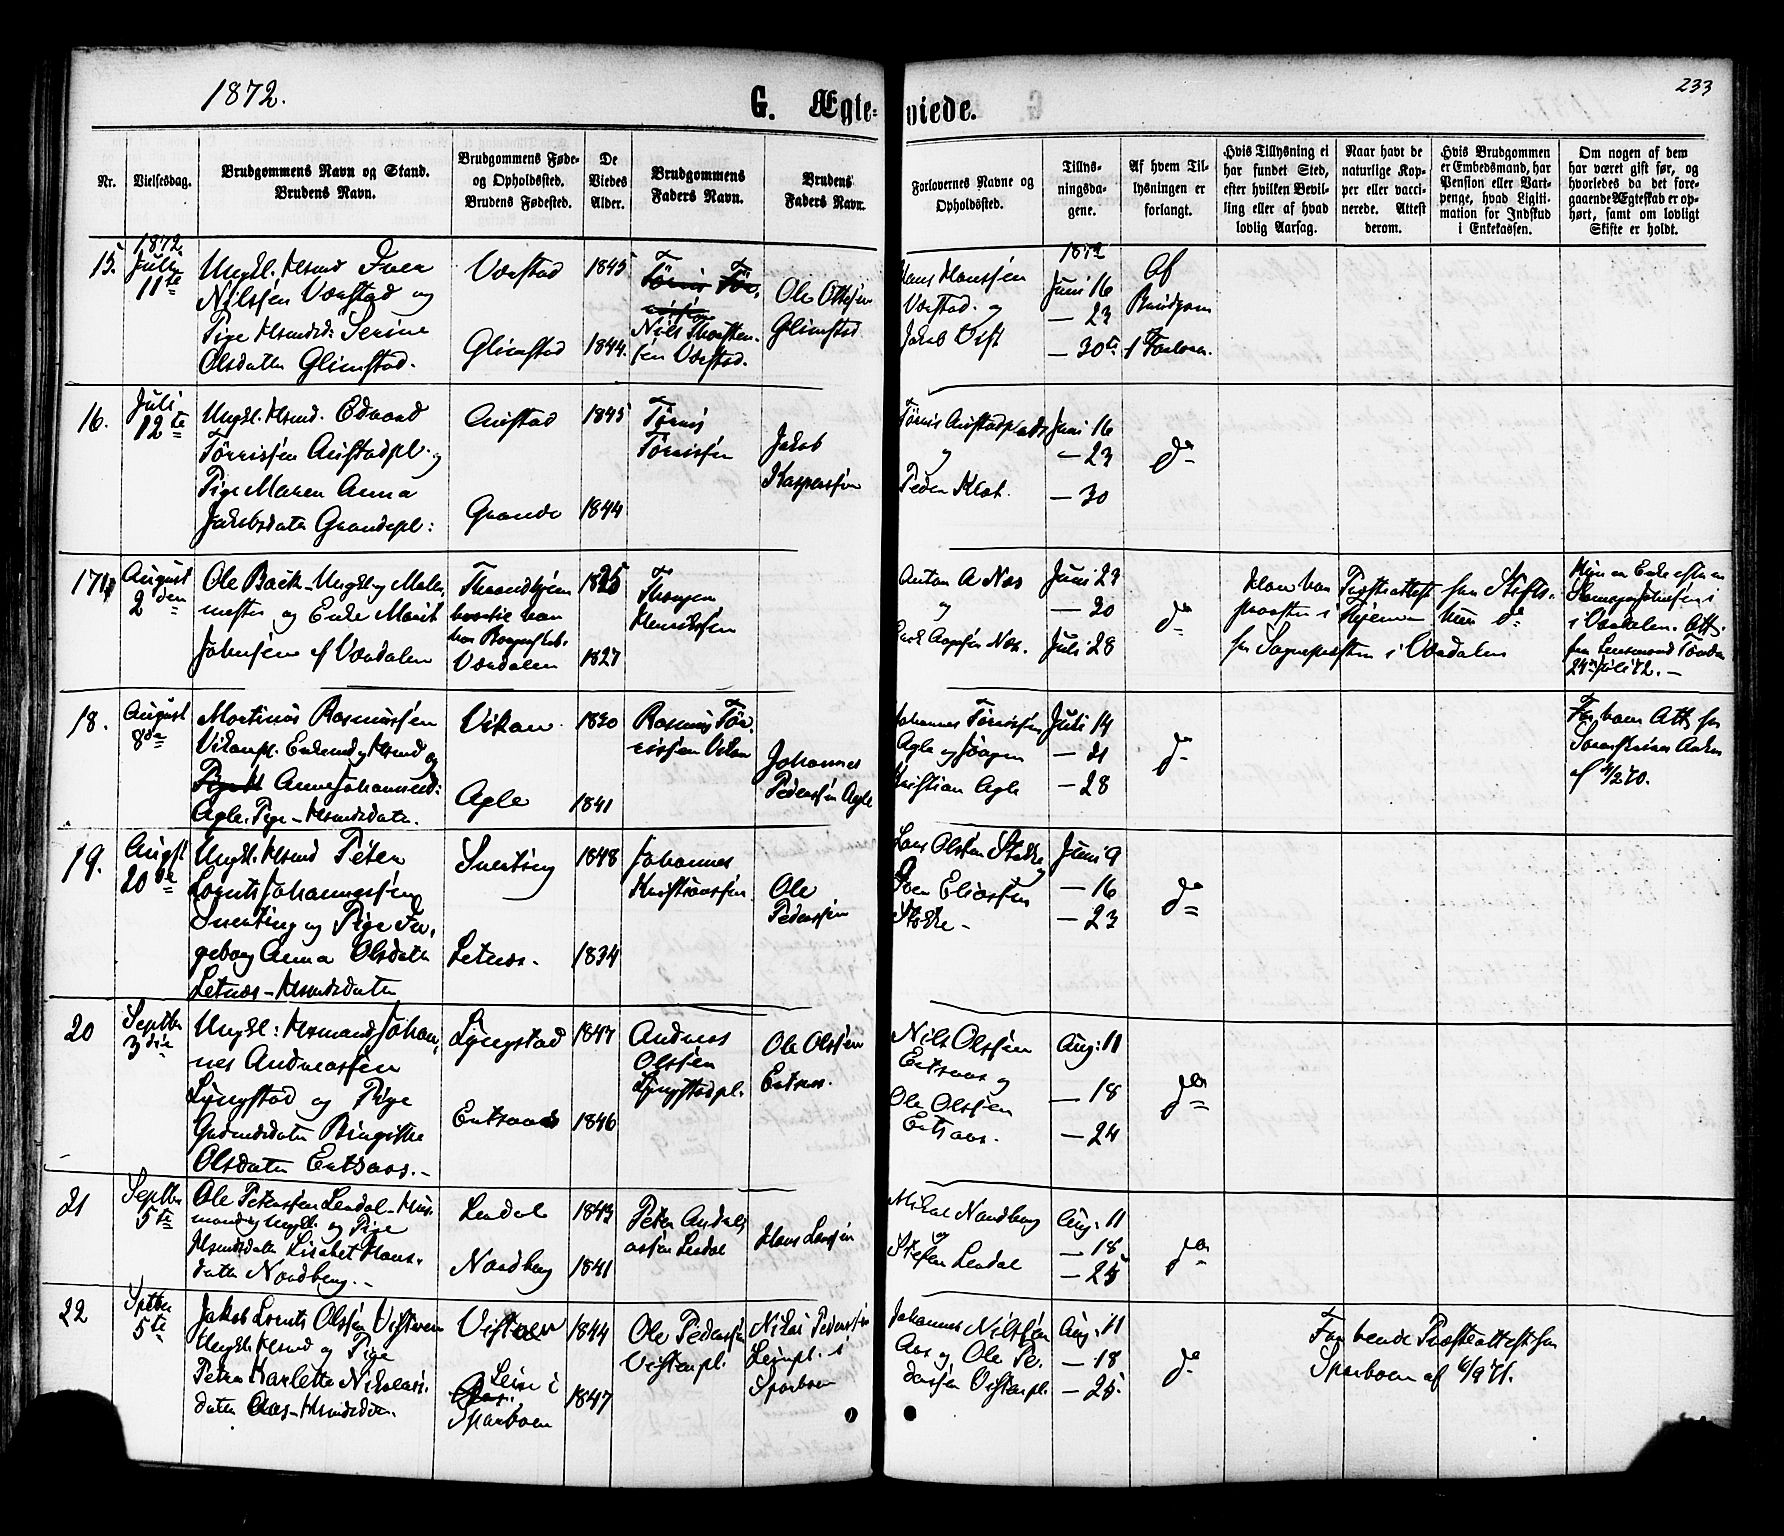 1872.
G. Ægte=
viede.
233
Nr.
Vielsesdag.
Brudgommens Navn og Stand.
Brudens Navn.
Brudgommens Føde-
og Opholdssted.
Brudens Fødested.
De
Viedes
Alder.
Brudgommens
Faders Navn.
Brudens
Faders Navn.
Forlovernes Navne og
Opholdssted.
Tillys-
ningsda-
gene.
Af hvem Til-
lysningen er
forlangt.
Hvis Tillysning ei
har fundet Sted,
efter hvilken Bevil-
ling eller af hvad
lovlig Aarsag.
Naar havt de
naturlige Kop-
per eller vacci-
nerede. Attest
derom.
Hvis Brudgommen
er Embedsmand, har
Pension eller Vart-
penge, hvad Ligiti-
mation for Indskud
i Enkekassen.
Om nogen af dem
har været gift før, og
hvorledes da det fore-
gaaende Ægteskab er op-
hørt, samt om lovligt
Skifte er holdt.
15.
1872
Juli
11te
Ungkl. Hsmd Iver
Nilssen Værstad og
Pige Hsmdsd: Serine
Olsdatter Glimstad.
Værstad
Glimstad
1845
1844.
Nils Thorsten-
sen Værstad.
Ole Ottesen
Glimstad
Hans Hanssen
Værstad og
Jakob Vist
1872
Juni 16
— 23
— 30te
Af
Brudgom
& Forlover.
16.
Juli
12te
Ungkl. Hsmd. Edvard
Tørrissen Aunstadpl. og
Pige Maren Anna
Jakobsdatter Grandepl:
Aunstad
Grande
1845
1844
Tørris
Tørrissen
Jakob
Kaspersen
Tørris Aunstadplads
og
Peder Klæt.
Juni 16
— 23
— 30
do
17
August
2den
Ole Back Ungkl. og Maler-
mester og Enke Marit
Johnsen af Værdalen
Throndhjem
Værdalen
1825
1827
Thorgen
Henrikssen
Anton A Næs
og
Juni 23
— 30
Juli 28
do
Han har Præsteattest fra Stifts-
provsten i Thjem hun do
fra Sognepræsten i Værdalen
Hun er Enke efter
i Værdalen. Att.
fra Lensmand
24de Juli 72. —
18.
August
8de
Martinus Rasmussen
Vikanpl. Enkemd og Hsmd og
Anne Johannesd:
Agle. Pige - Hsmdsdatter.
Vikan
Agle
1830
1841
Rasmus Tør-
rissen Vikan
Johannes
Pederssen Agle
Johannes Tørrissen
Agle og Jørgen
Kristian Agle
Juli 14
— 21
— 28
do
For ham Att. fra
Sorenskriver
af
19.
Augst
20de
Ungkl. Hsmd Peter
Lornts Johannessen
Snerting og Pige In-
geborg Anna Olsdatter
Letnæs - Hsmdsdatter
Snerting
Letnæs.
1848
1834
Johannes
Kristianssen
Ole
Pederssen
Lars Olssen Stokke
Iver Eliassen
Stokke -
Juni 9
— 16
— 23
do
20
Septbr
3die
Ungkl: Hsmand Johan-
nes Andreassen
Lyngstad og Pige
Gaardmdsdatter Birgitte
Olsdatter Entsaas. -
Lyngstad
Entsaas
1847
1846
Andreas
Olssen
Lyngstadpl.
Ole Olssen
Entsaas.
Nils Olssen
Entsaas og
Ole Olssen
Entsaas.
Aug: 11
— 18
— 24
do
21
Septbr
5te
Ole Peterssen Lerdal Hus-
mand og Ungkl. og Pige
Hsmdsdatter Lisabet Hans-
datter Nordberg. -
Lerdal
Nordberg
1843
1841
Peter Andre-
assen Lerdal
Hans Larssen
Mikal Nordberg
og
Stefan Lerdal
Aug: 11
— 18
— 25
do
22
Septbr
5te
Jakob Lornts Olssen Vistven
Ungkl. Hsmd og Pige
Petra Karlette Nikolais-
datter Aas - Hsmdsdtr.
Vistven
Lein i
Sparboen
1844
1847
Ole Pederssen
Vistvenpl.
Nikolai Pederssen
Leinpl. i
Sparboen
Johannes Nilssen
Aas og Ole Pe-
derssen Vistvenpl.
Aug: 11
— 18
— 25
do
For hende Præsteattest fra
Sparboen af 6/9 71.